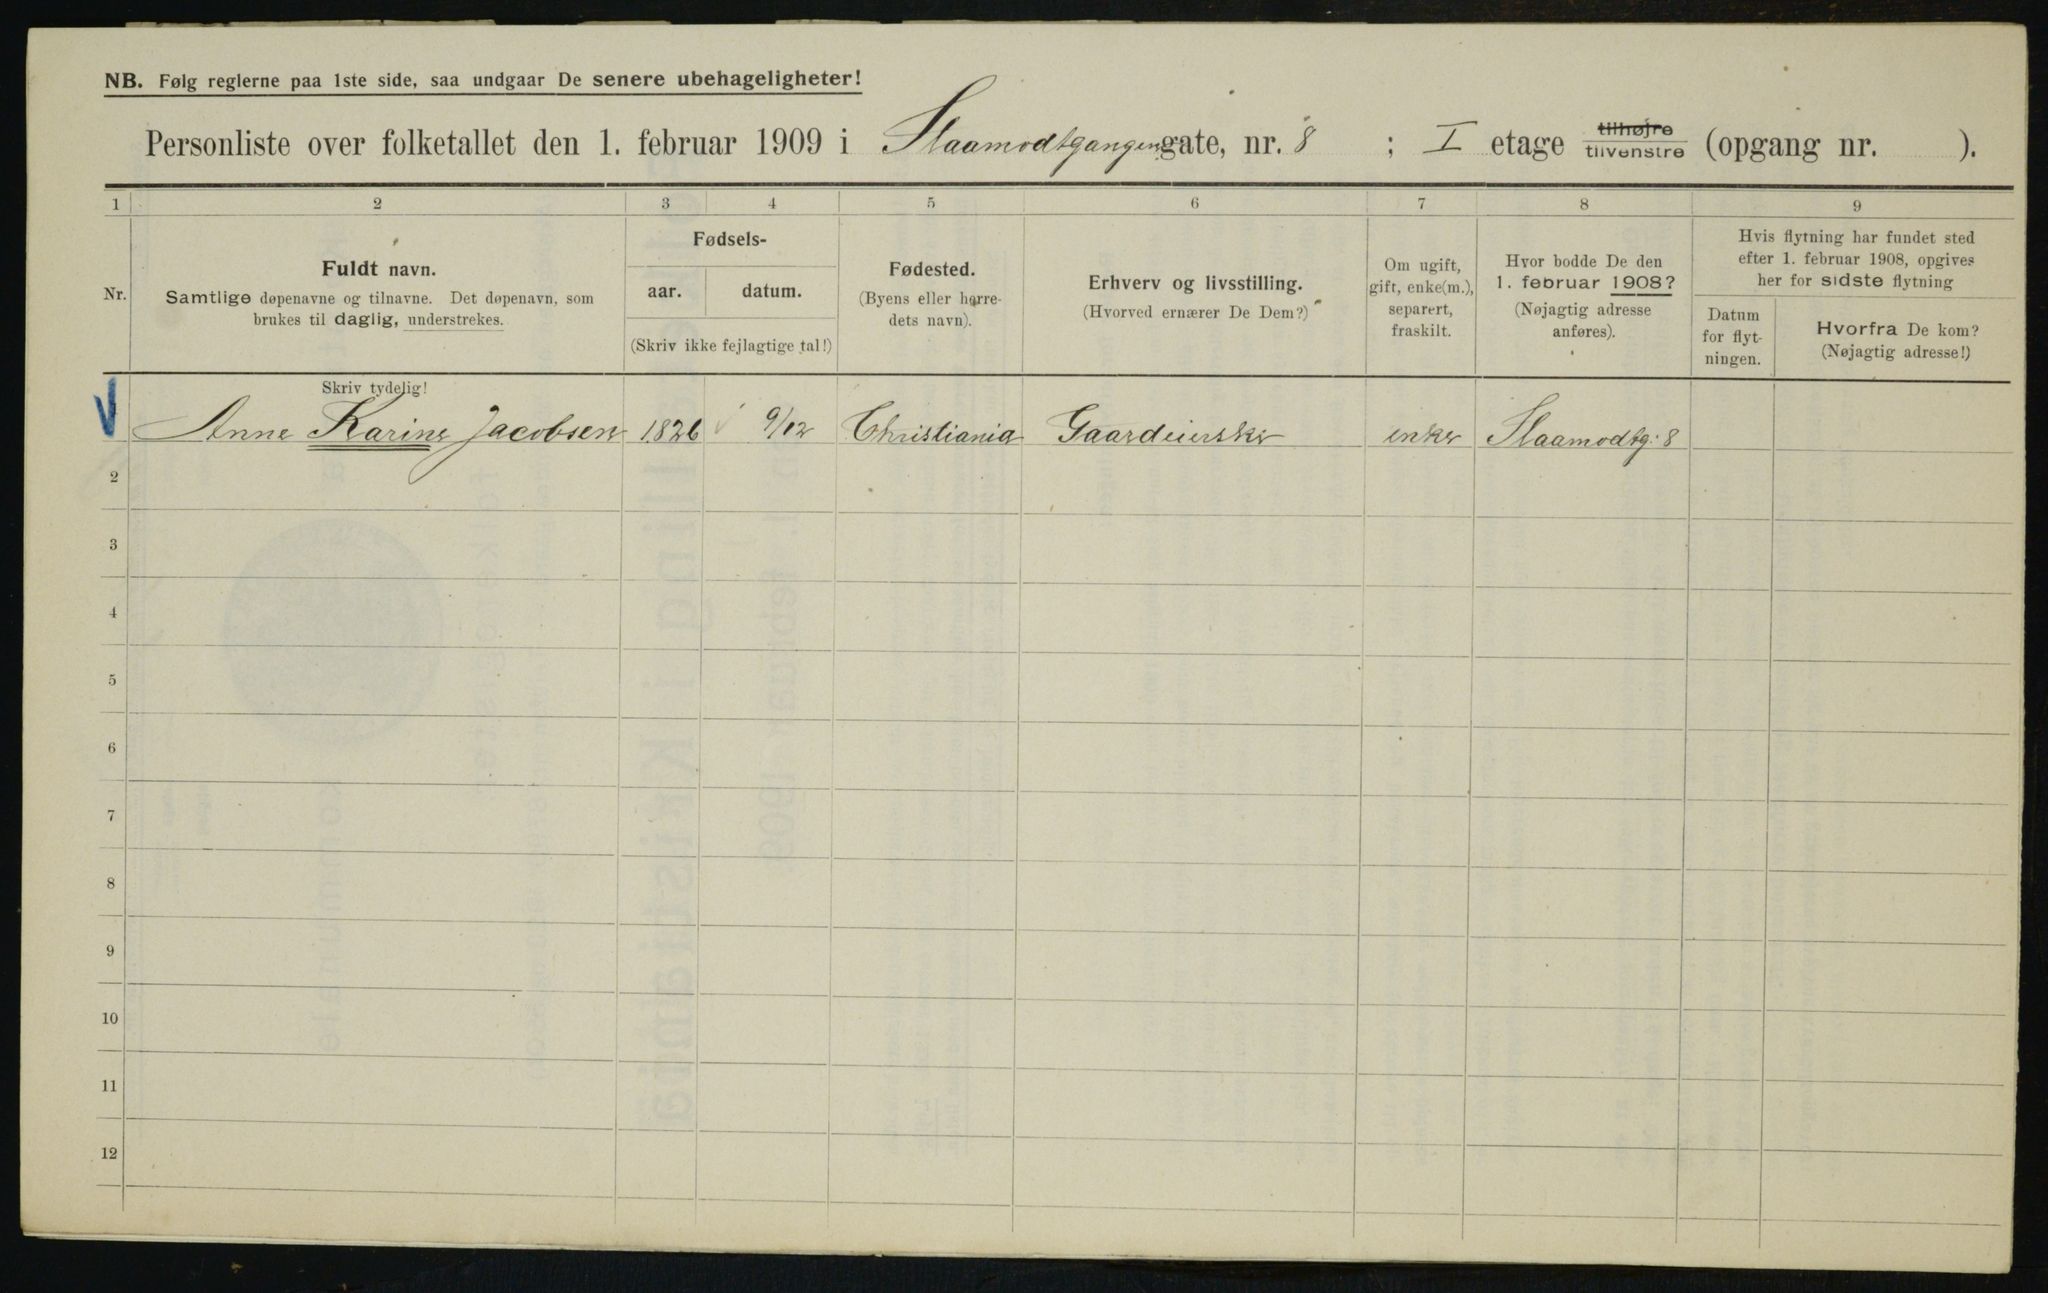 NB. Følg reglerne paa 1ste side, saa undgaar De senere ubehageligheter!
Personliste over folketallet den 1. februar 1909 i Slaamodtgangen gate, nr. 8 ; I etage tilhøjre tilvenstre (opgang nr. ).
1 2 3 4 5 6 7 8 9
Nr.
Fuldt navn.
Samtlige døpenavne og tilnavne. Det døpenavn, som
brukes til daglig, understrekes.
Fødsels-
aar. datum.
(Skriv ikke fejlagtige tal!)
Fødested.
(Byens eller herre-
dets navn).
Erhverv og livsstilling.
(Hvorved ernærer De Dem?)
Om ugift,
gift, enke(m.),
separert,
fraskilt.
Hvor bodde De den
1. februar 1908?
(Nøjagtig adresse
anføres).
Hvis flytning har fundet sted
efter 1. februar 1908, opgives
her for sidste flytning
Datum
for flyt-
ningen.
Hvorfra De kom?
(Nøjagtig adresse!)
Skriv tydelig!
Anne Karine Jacobsen 1826 9/12 Christiania Gaardeierske enke Slaamodtg: 8
2
3
4
5
6
7
8
9
10
11
12